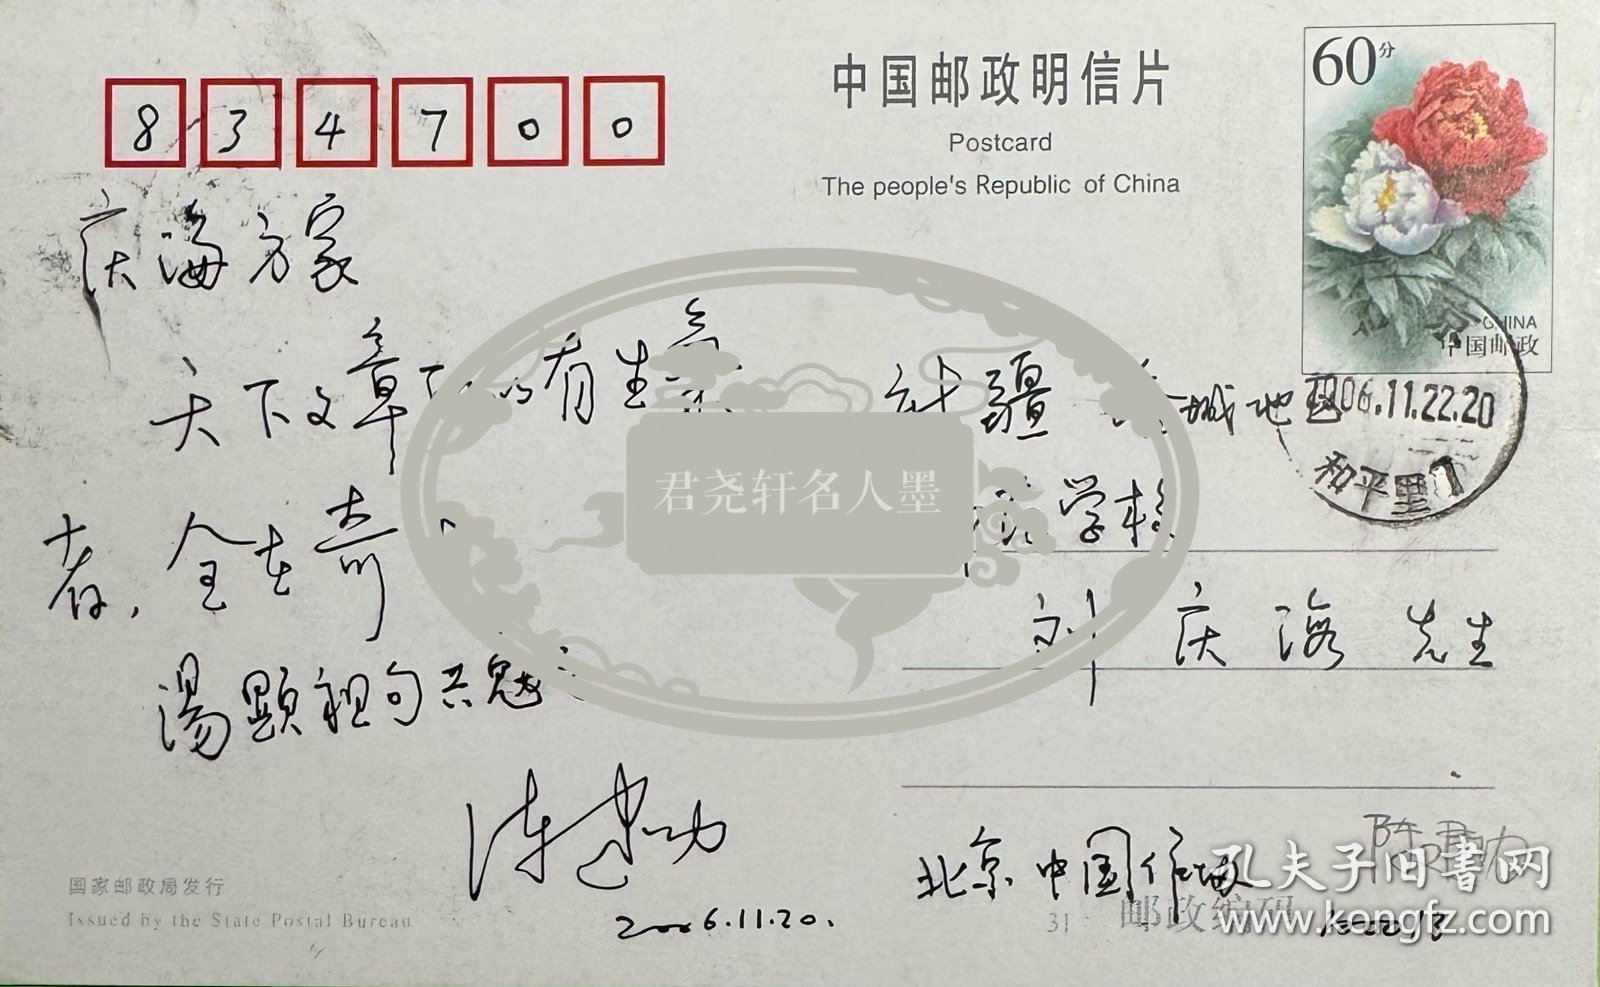 834700
中国邮政明信片
Postcard
The people's Republic of China
60分
CHINA
中国邮政
2006.11.22.20
和平里
庆海方家
天下文章所以有生气
者，全在奇
湯顯祖句共勉
陈建功
2006.11.20.
疆 城地
学校
刘庆海 先生
北京中国作协
陈建功
国家邮政局发行
Issued by the State Postal Bureau
31
邮政编码
君尧轩名人墨
孔夫子旧书网
www.kongfz.com